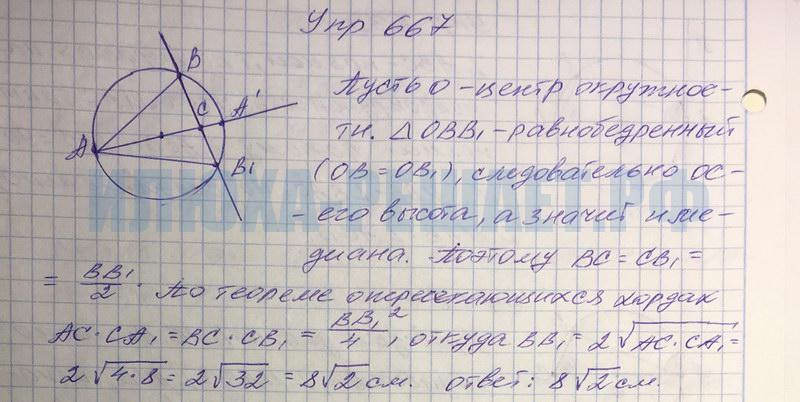 Упр 667
B
C
A'
A
B₁
Пусть O - центр окружнос-
ти. △OBB₁ - равнобедренный
(OB = OB₁), следовательно OC -
- его высота, а значит и ме-
диана. Поэтому BC = CB₁ =
= BB₁/2. По теореме о пересекающихся хордах
AC · CA₁ = BC · CB₁ = BB₁²/4, откуда BB₁ = 2√AC · CA₁ =
2√4·8 = 2√32 = 8√2 см. ответ: 8√2 см.